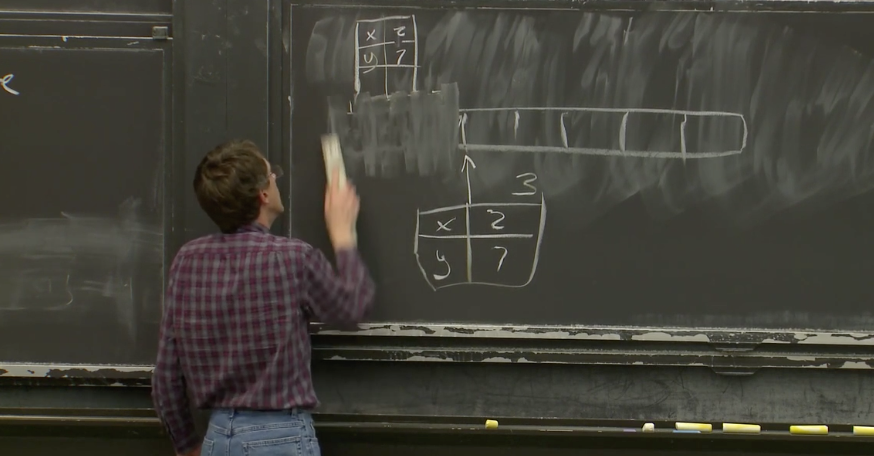 x 2
y 7
3
x 2
y 7